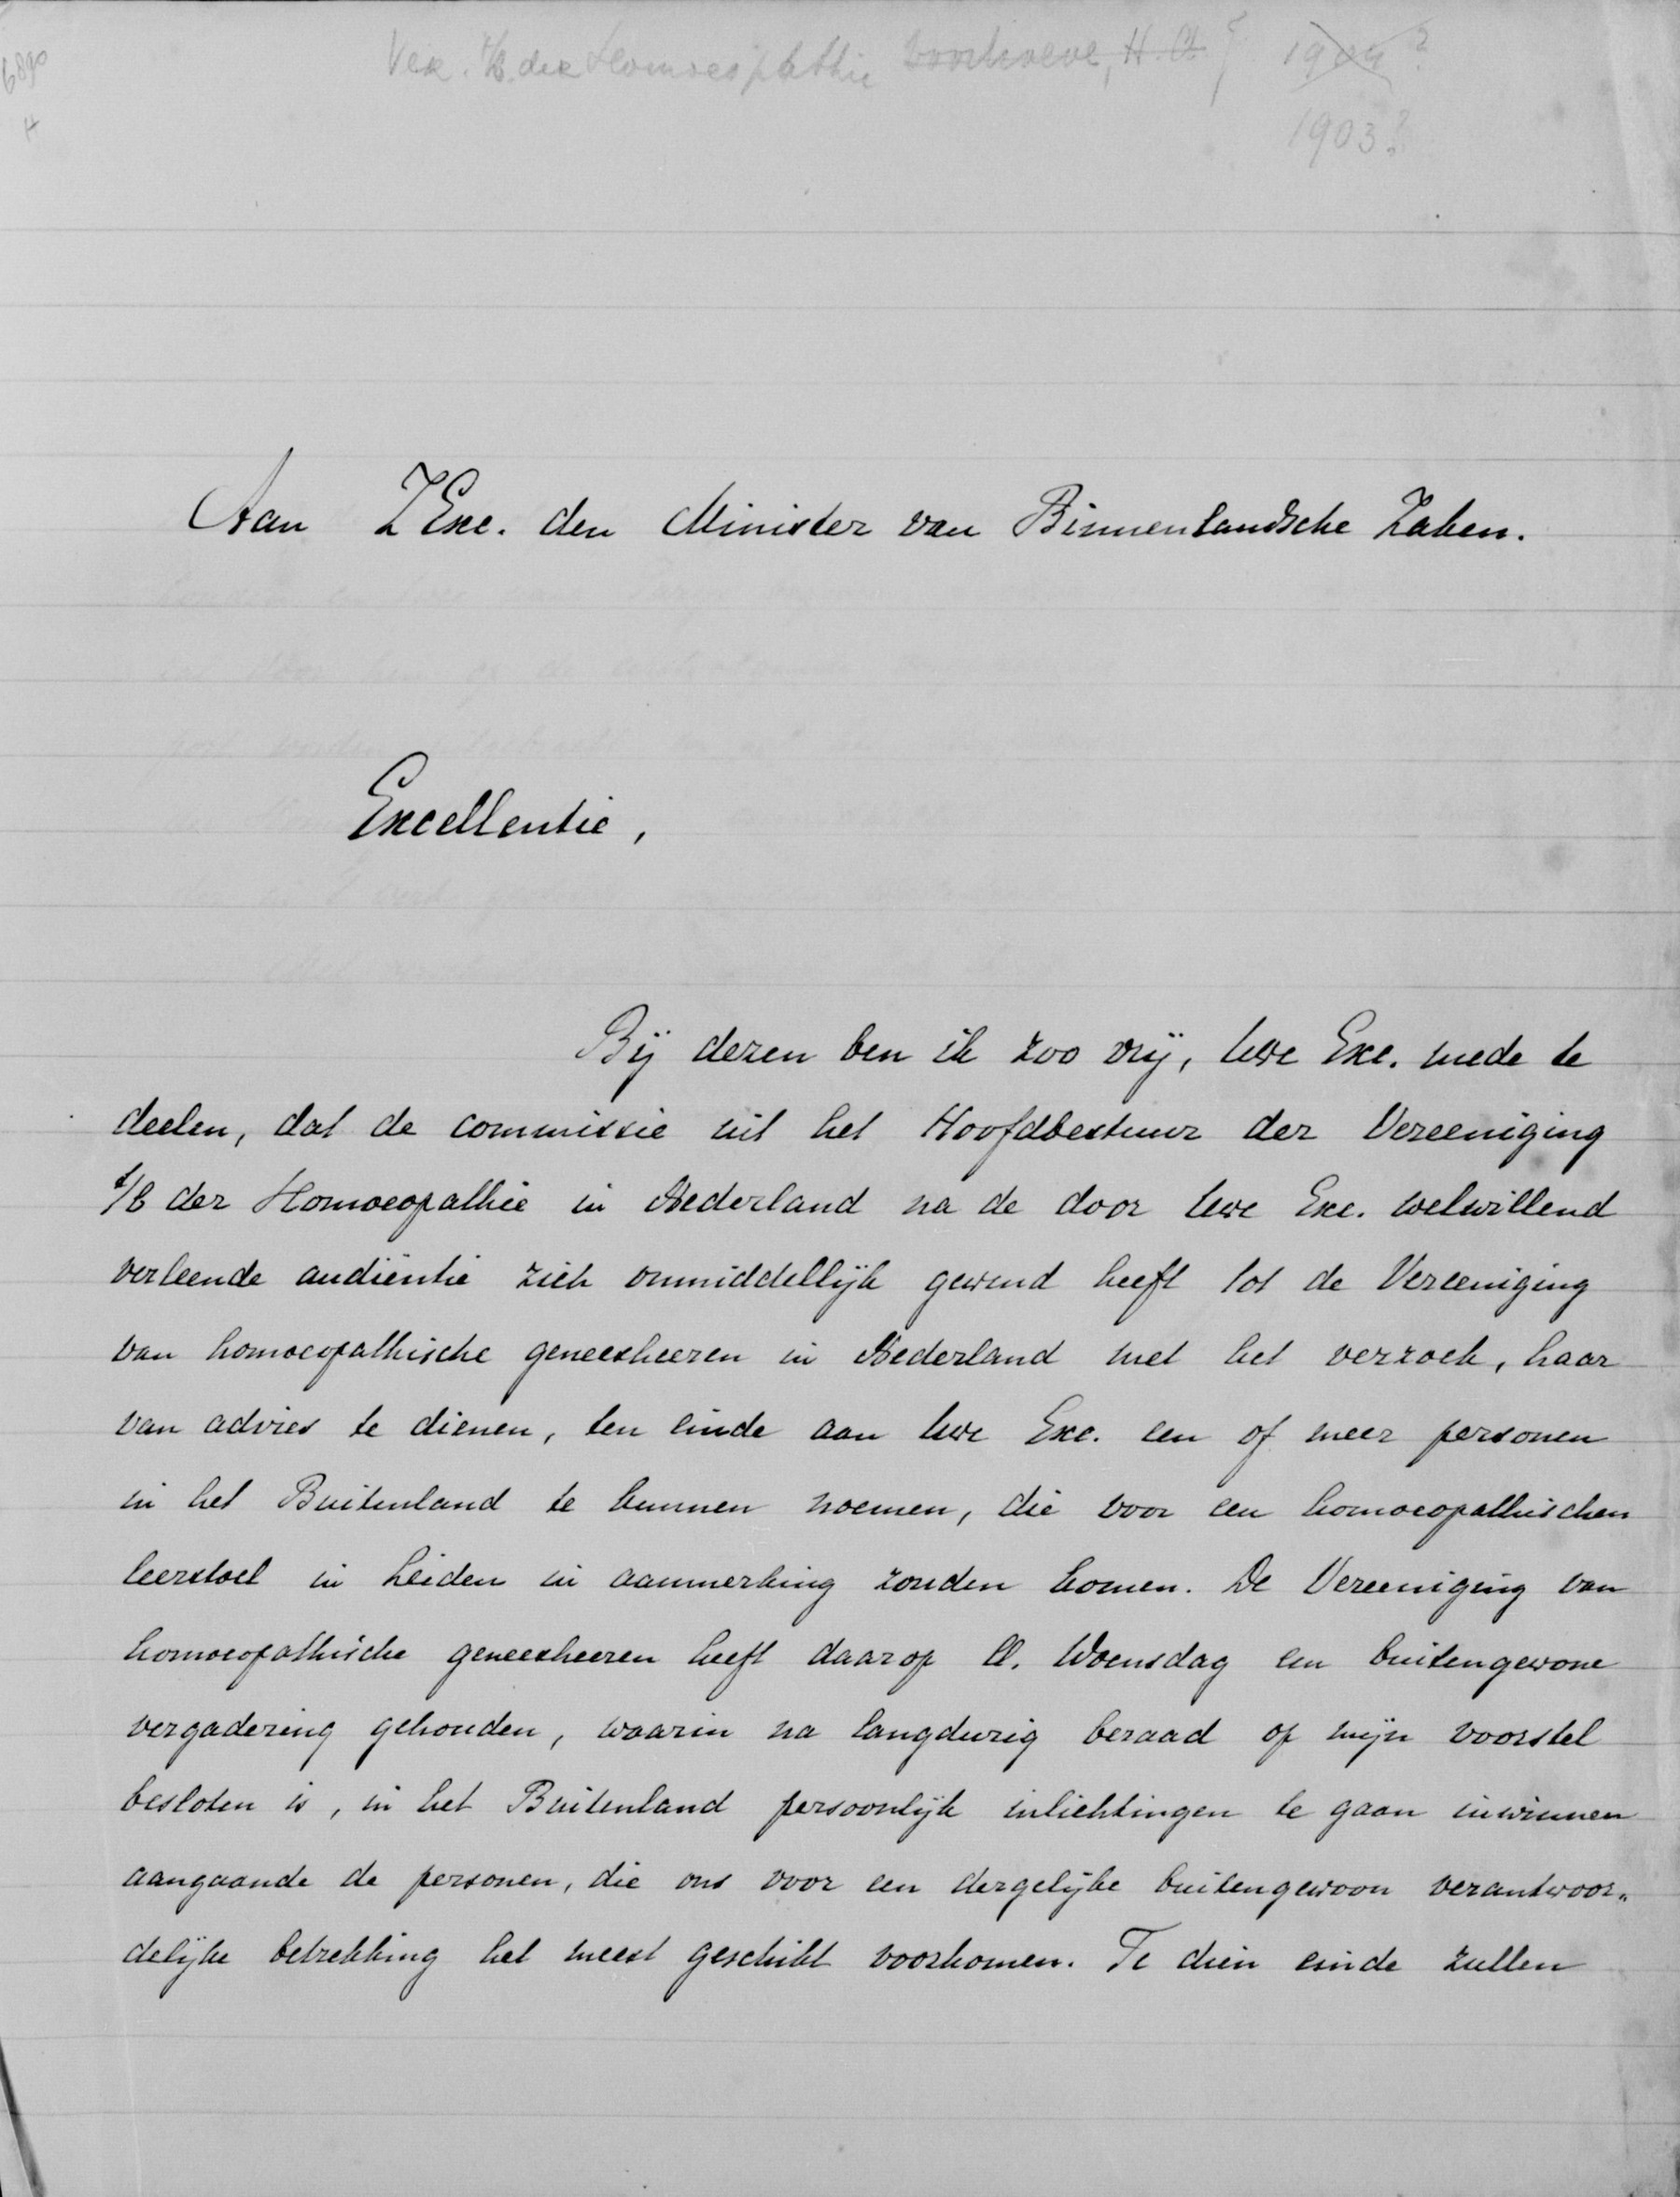 Ver. t/b. der Homoeopathie Voorhoeve, H. A. ? 1904?
1903?
6890
Aan Z Exc. den Minister van Binnenlandsche Zaken.
Excellentie,
Bij dezen ben ik zoo vrij, Uwe Exc. mede te
deelen, dat de commissie uit het Hoofdbestuur der Vereeniging
t/b der Homoeopathie in Nederland na de door Uwe Exc. welwillend
verleende audiëntie zich onmiddellijk gewend heeft tot de Vereeniging
van homoeopathische geneesheeren in Nederland met het verzoek, haar
van advies te dienen, ten einde aan Uwe Exc. een of meer personen
in het Buitenland te kunnen noemen, die voor een homoeopathischen
leerstoel in Leiden in aanmerking zouden komen. De Vereeniging van
homoeopathische geneesheeren heeft daarop ll. Woensdag een buitengewone
vergadering gehouden, waarin na langdurig beraad op mijn voorstel
besloten is, in het Buitenland persoonlijk inlichtingen te gaan inwinnen
aangaande de personen, die ons voor een dergelijke buitengewoon verantwoor„
delijke betrekking het meest geschikt voorkomen. Te dien einde zullen